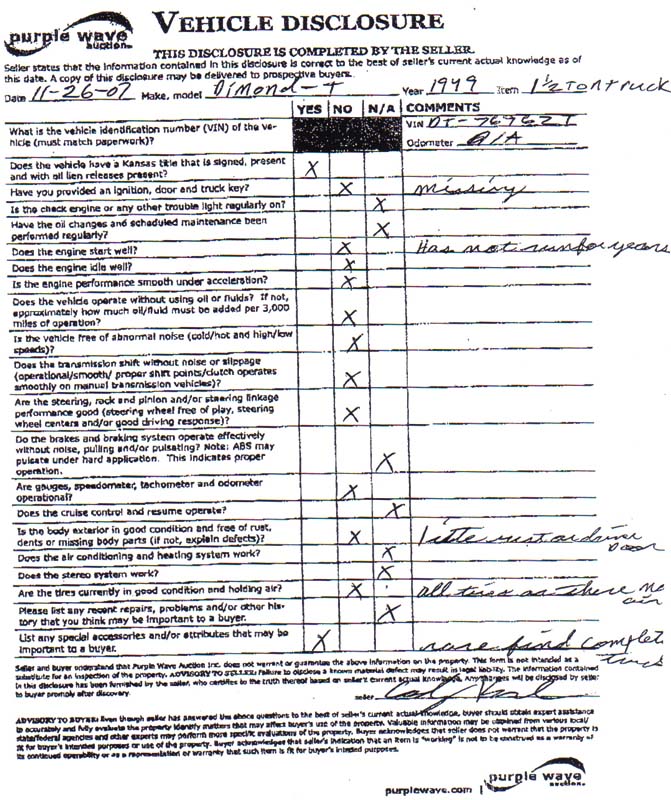 purple wave
auction.
VEHICLE DISCLOSURE
THIS DISCLOSURE IS COMPLETED BY THE SELLER.
Seller states that the information contained in this disclosure is correct to the best of seller's current actual knowledge as of
this date. A copy of this disclosure may be delivered to prospective buyers.
Date 11-26-07 Make, model Dimond-T Year 1949 Item 1 1/2 Ton truck
YES NO N/A COMMENTS
What is the vehicle identification number (VIN) of the ve-
hicle (must match paperwork)?
VIN DT-769621
Odometer
Does the vehicle have a Kansas title that is signed, present
and with all lien releases present? X
Have you provided an ignition, door and truck key? X missing
Is the check engine or any other trouble light regularly on? X
Have the oil changes and scheduled maintenance been
performed regularly? X
Does the engine start well? X Has not run for years
Does the engine idle well? X
Is the engine performance smooth under acceleration? X
Does the vehicle operate without using oil or fluids? If not,
approximately how much oil/fluid must be added per 3,000
miles of operation? X
Is the vehicle free of abnormal noise (cold/hot and high/low
speeds)? X
Does the transmission shift without noise or slippage
(operational/smooth/ proper shift points/clutch operates
smoothly on manual transmission vehicles)? X
Are the steering, rack and pinion and/or steering linkage
performance good (steering wheel free of play, steering
wheel centers and/or good driving response)? X
Do the brakes and braking system operate effectively
without noise, pulling and/or pulsating? Note: ABS may
pulsate under hard application. This indicates proper
operation. X
Are gauges, speedometer, tachometer and odometer
operational? X
Does the cruise control and resume operate? X
Is the body exterior in good condition and free of rust,
dents or missing body parts (if not, explain defects)? X little rust on driver
Door
Does the air conditioning and heating system work? X
Does the stereo system work? X
Are the tires currently in good condition and holding air? X all tires are there no
air
Please list any recent repairs, problems and/or other his-
tory that you think may be important to a buyer. X
List any special accessories and/or attributes that may be
important to a buyer. X rare find complet
truck
Seller and buyer understand that Purple Wave Auction Inc. does not warrant or guarantee the above information on the property. This form is not intended as a
substitute for an inspection of the property. ADVISORY TO SELLER: Failure to disclose a known material defect may result in legal liability. The information contained
in this disclosure has been furnished by the seller, who certifies to the truth thereof based on seller's current actual knowledge. Any changes will be disclosed by seller
to buyer promptly after discovery.
seller
ADVISORY TO BUYER: Even though seller has answered the above questions to the best of seller's current actual knowledge, buyer should obtain expert assistance
to accurately and fully evaluate the property identify matters that may affect buyer's use of the property. Valuable information may be obtained from various local/
state/federal agencies and other experts may perform more specific evaluations of the property. Buyer acknowledges that seller does not warrant that the property is
fit for buyer's intended purposes or use of the property. Buyer acknowledges that seller's indication that an item is "working" is not to be construed as a warranty of
its continued operability or as a representation or warranty that such item is fit for buyer's intended purposes.
purplewave.com |
purple wave
auction.